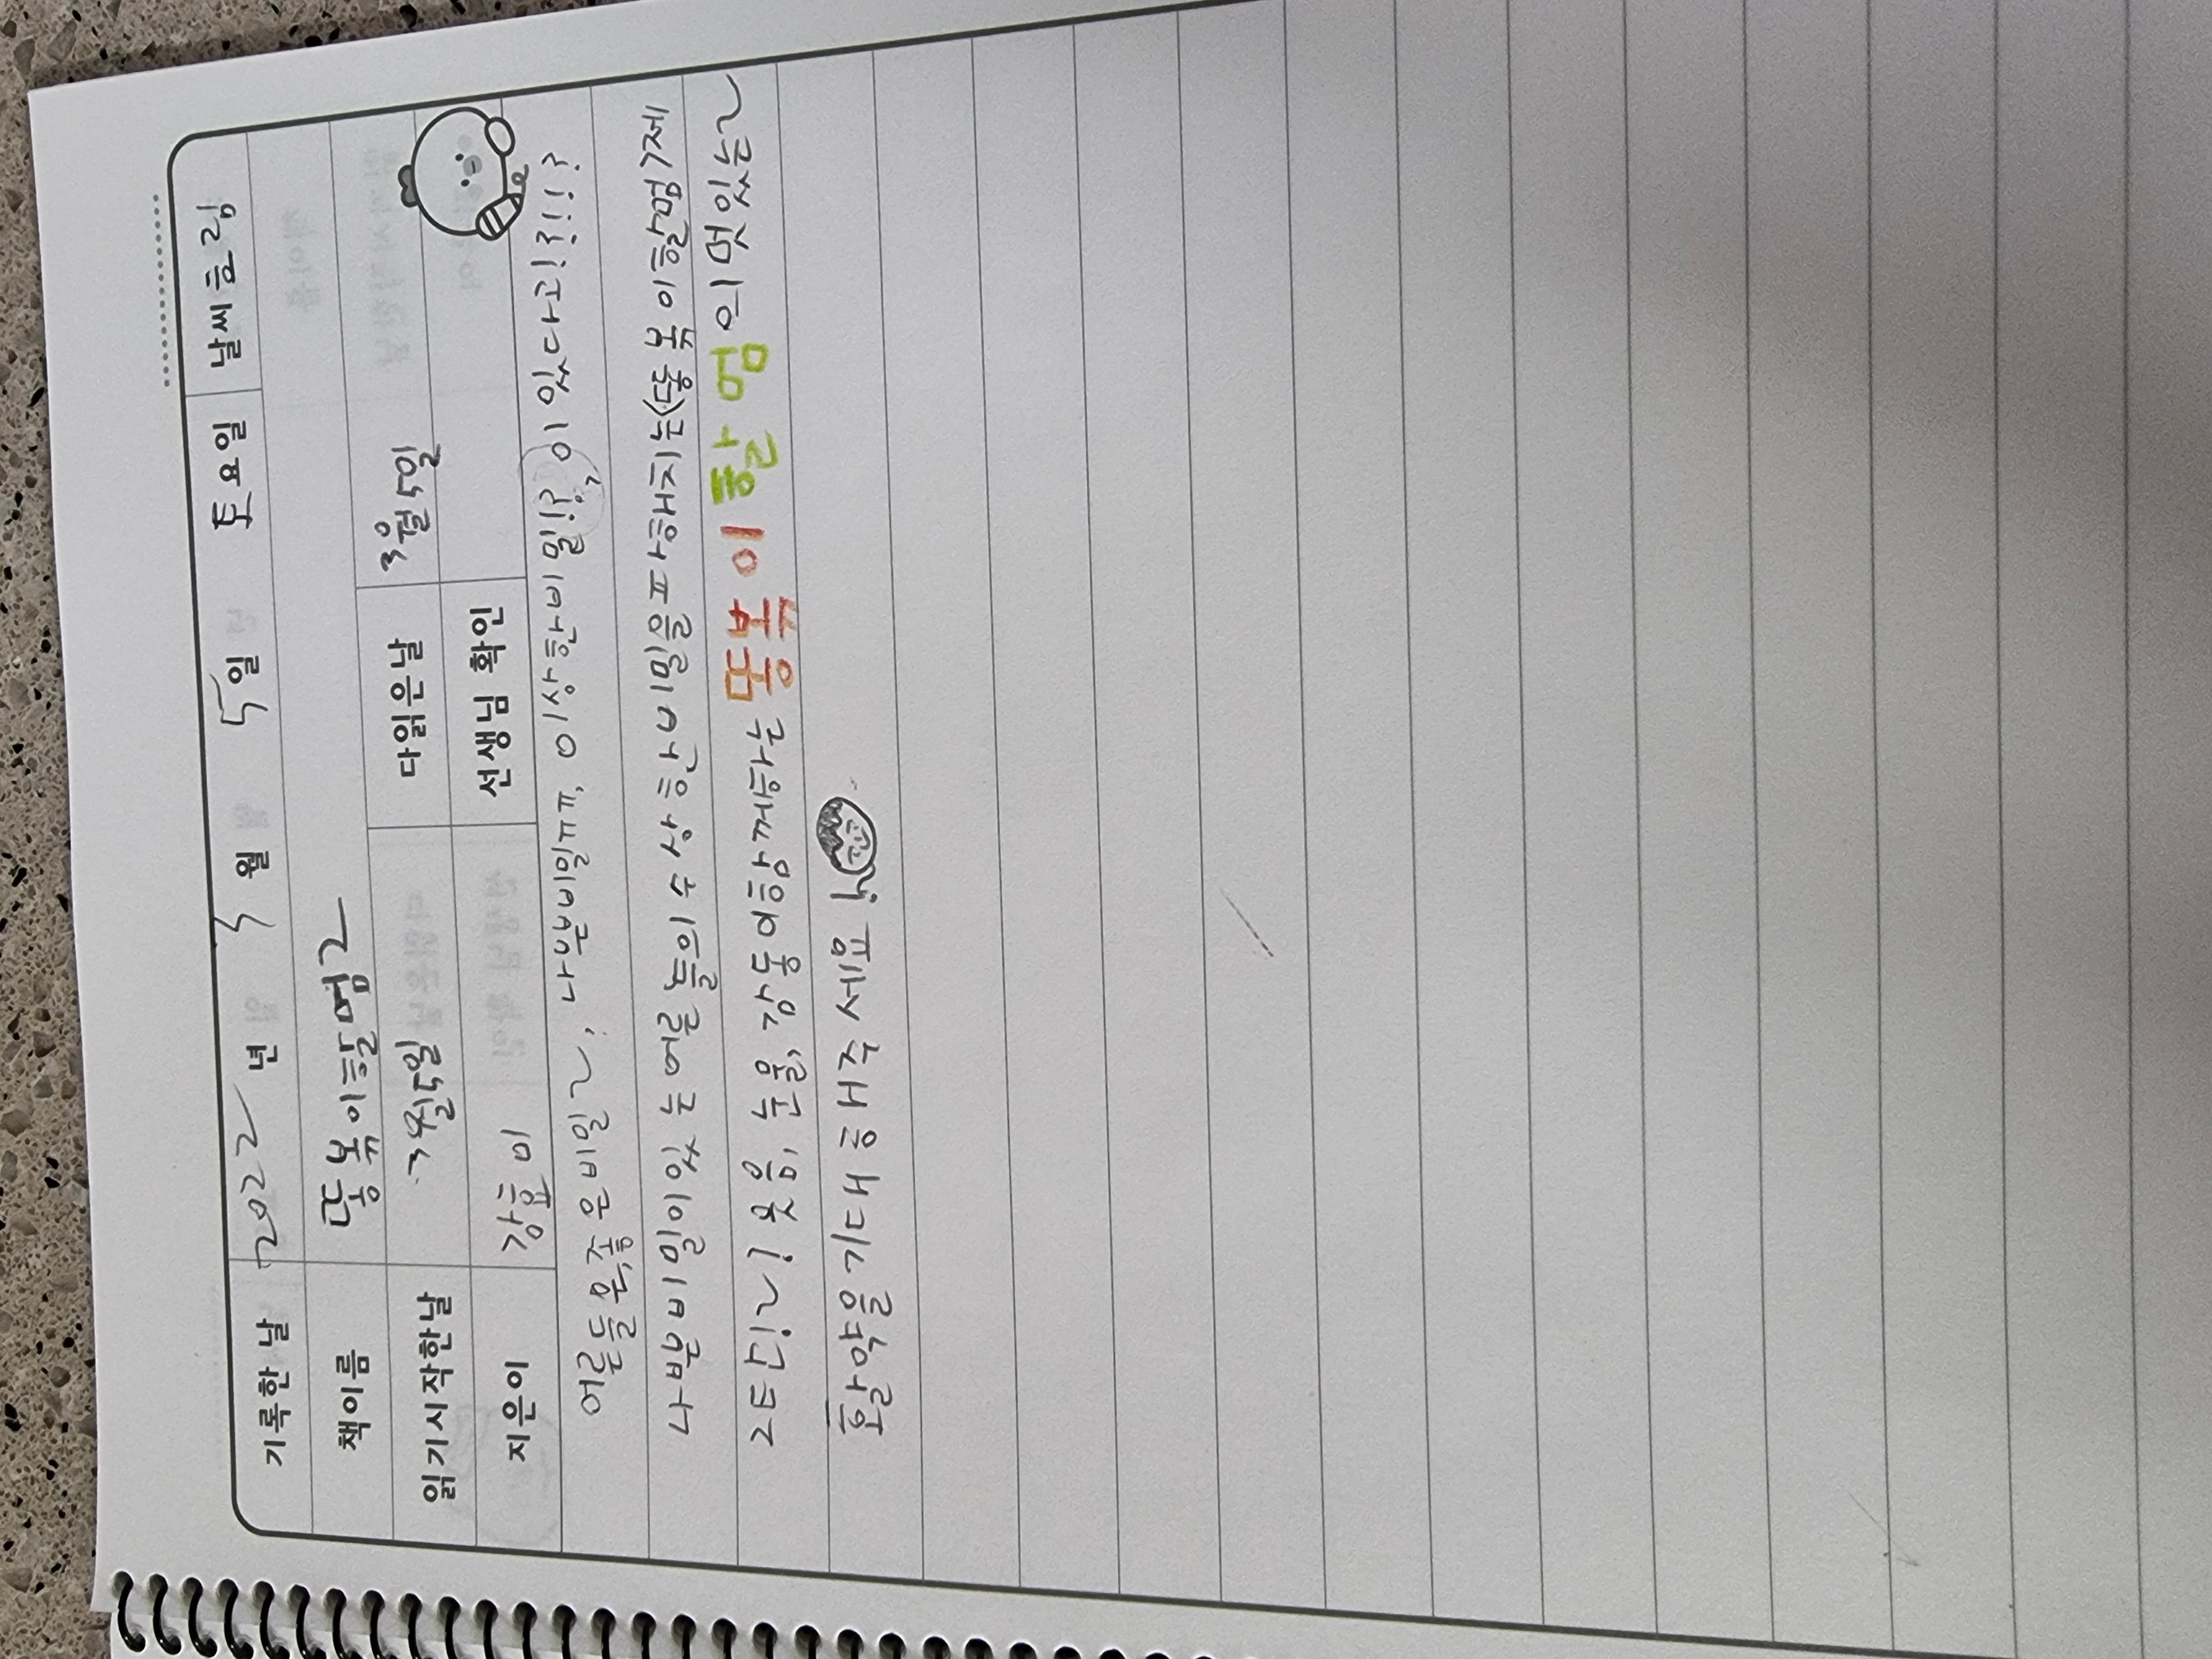 기록한 날 2022 년 3 월 5 일 토요일 날씨 흐림
책이름 똥볶이할멈2
읽기시작한날 3월5일 다읽은날 3월5일
지은이 강효미 선생님 확인
어른들은,좋은비밀~, 나쁜비밀ㅠㅠ, 이상한비밀!?, 이 있다고!?!!?
나쁜비밀이있는어른들의수상한비밀을파해치는<똥볶이할멈>제
2탄!~! 웃음, 눈물, 감동이함께하는 똥볶이 할멈의 멋있는~
활약을기대해주세요!